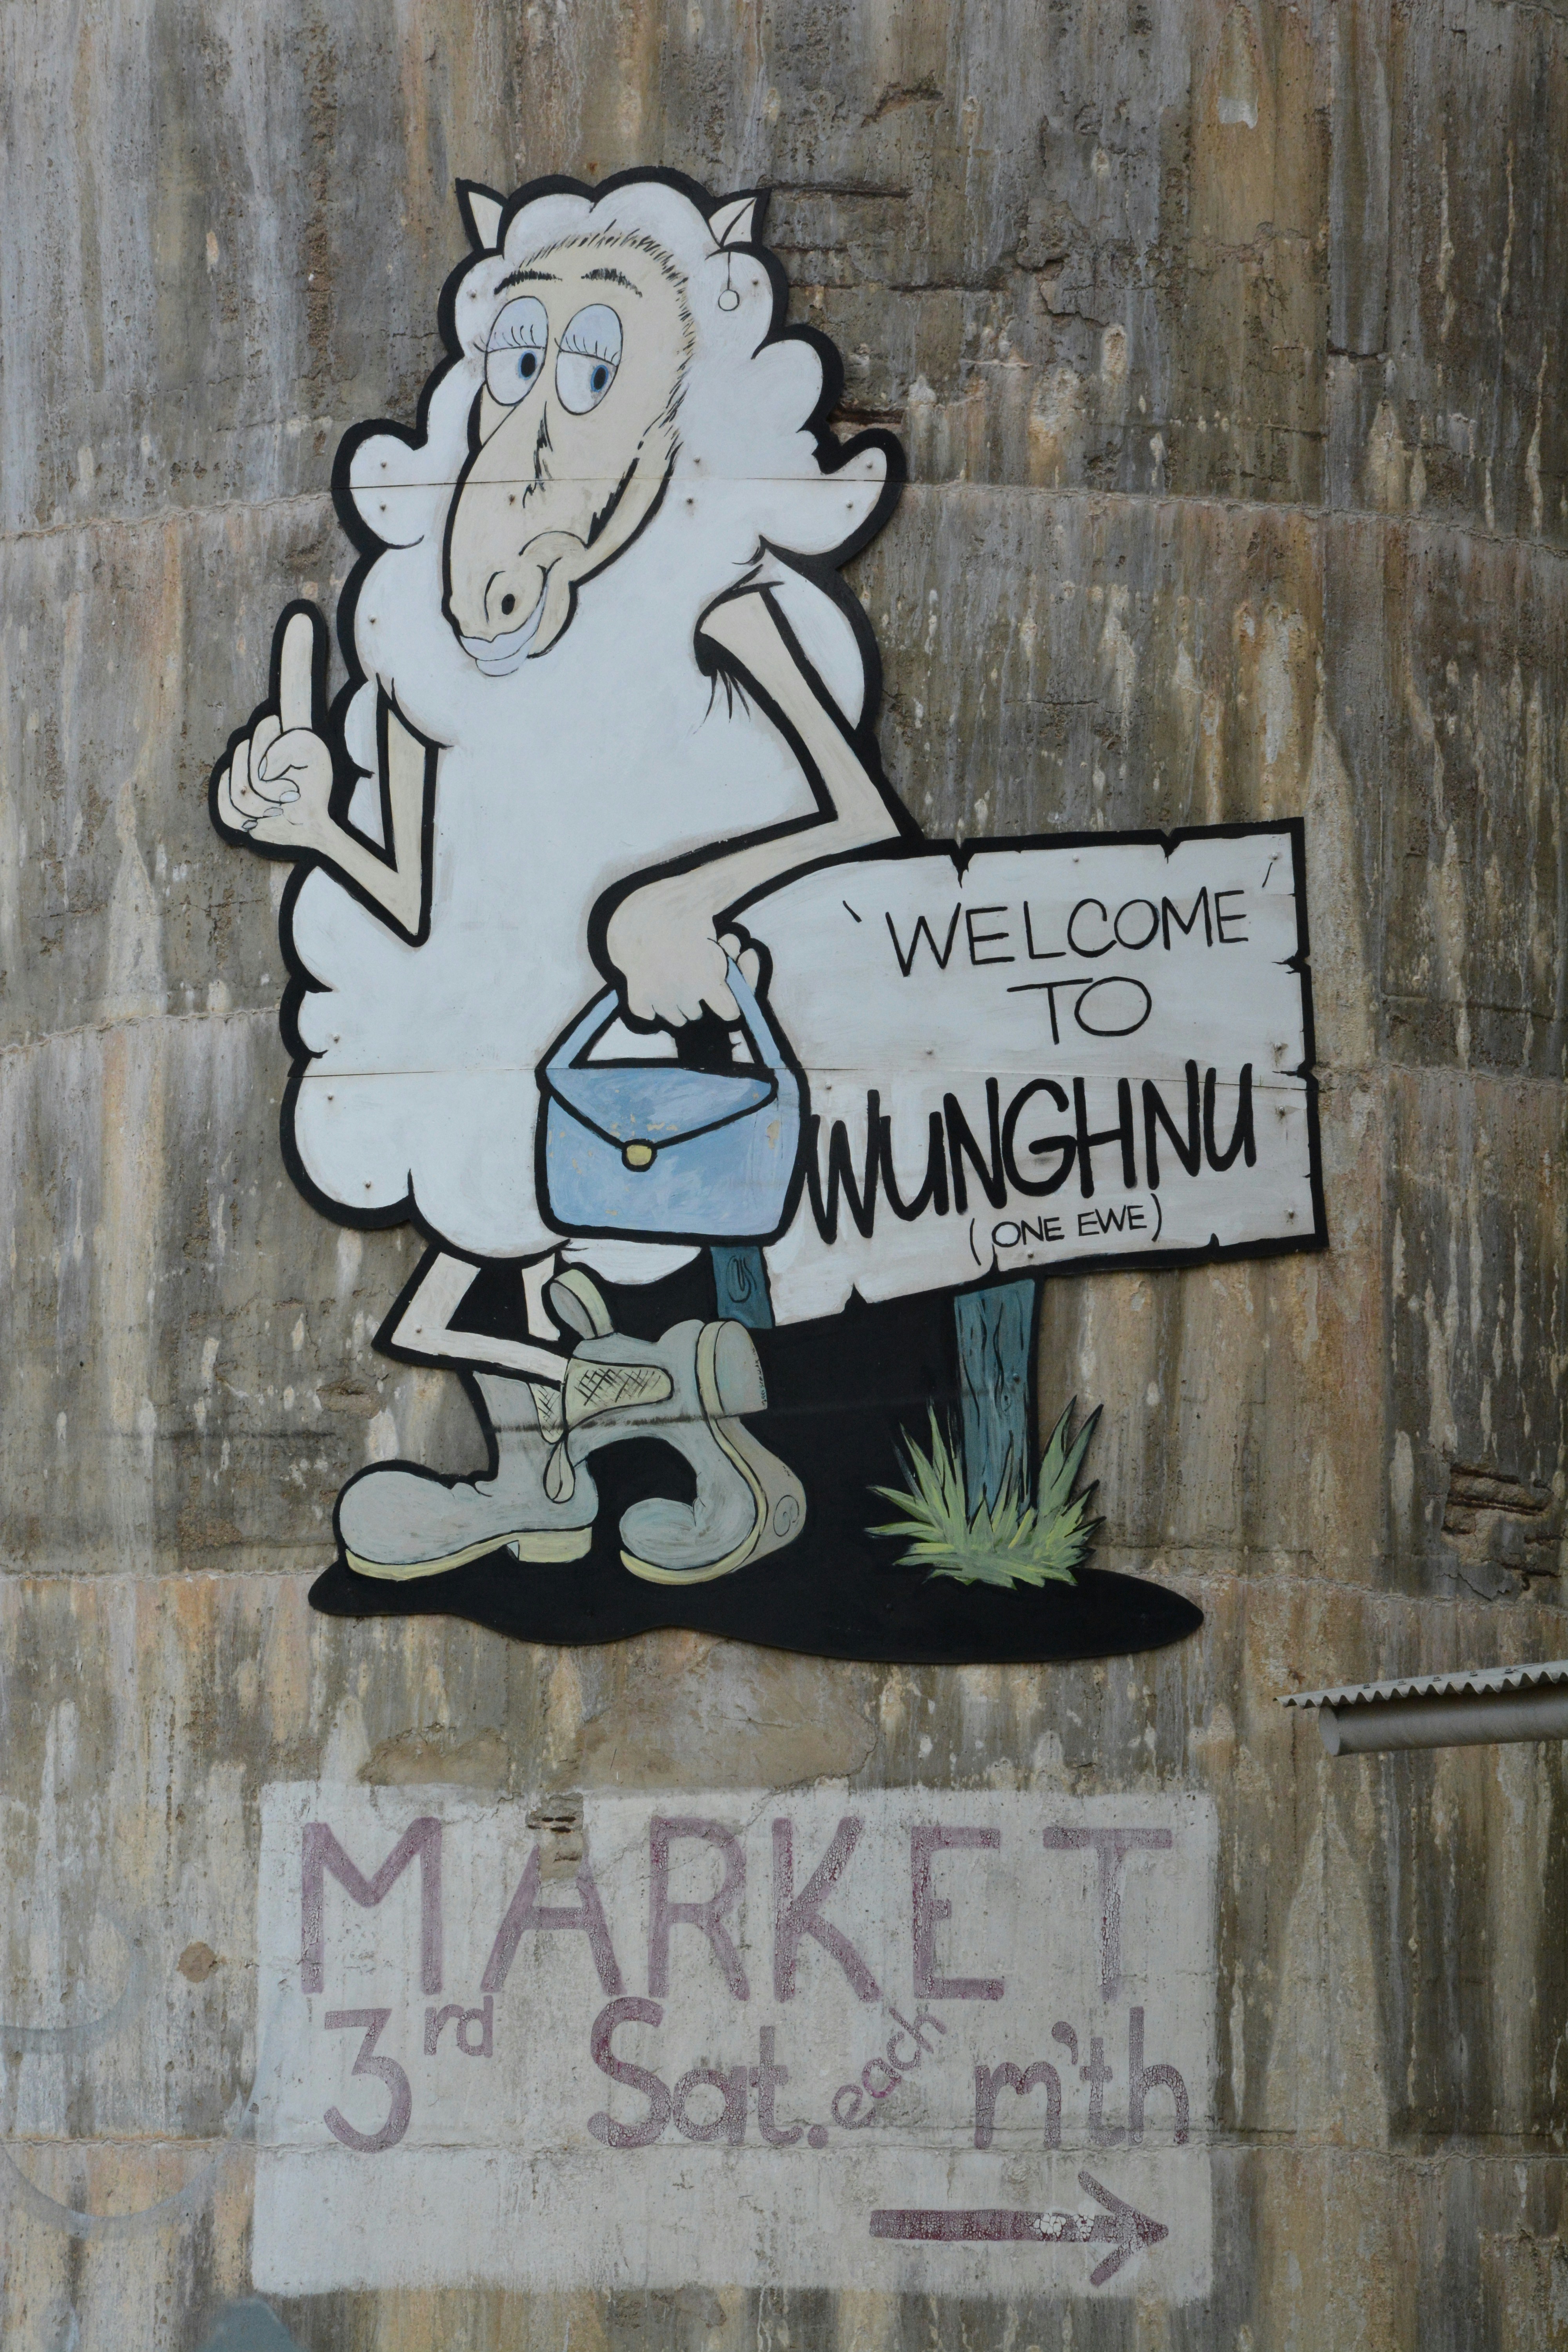 'WELCOME'
TO
WUNGHNU
(ONE EWE)
MARKET
3rd Sat. each m'th